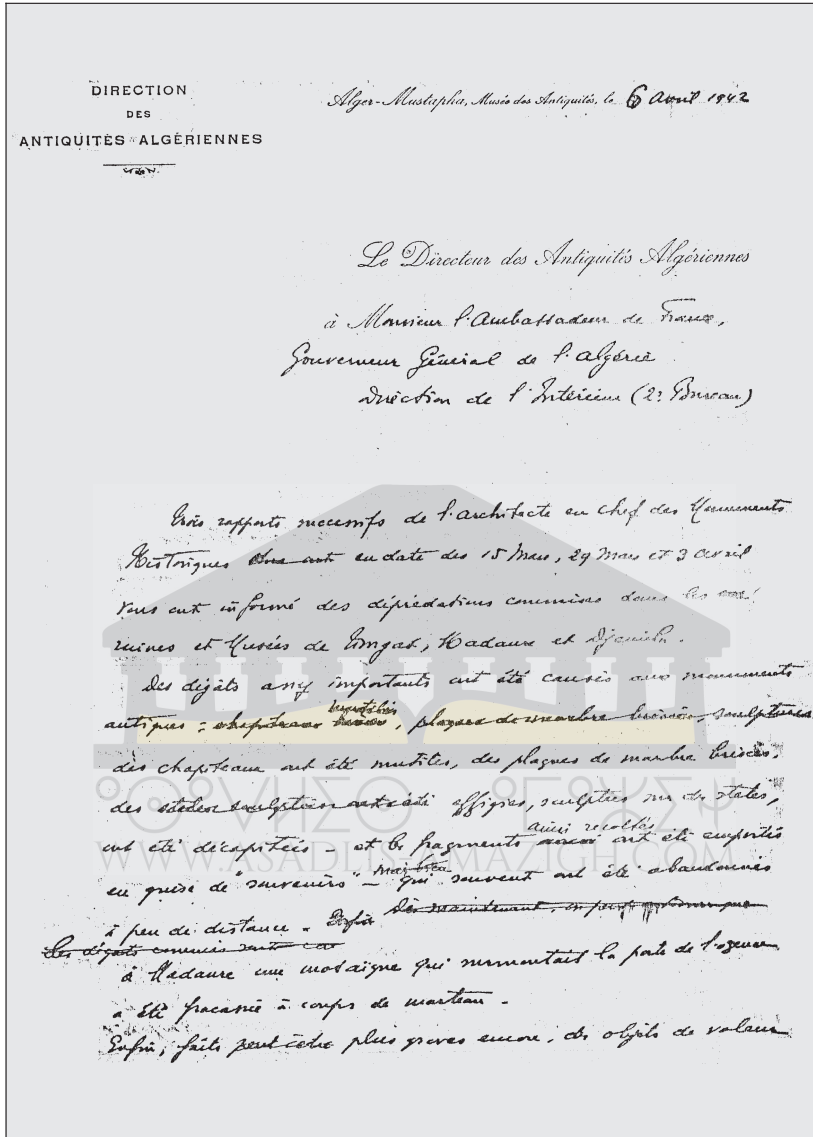 DIRECTION
DES
ANTIQUITÉS ALGÉRIENNES
Alger-Mustapha, Musée des Antiquités, le 6 Avril 1942
Le Directeur des Antiquités Algériennes
à Monsieur l'Ambassadeur de France,
Gouverneur Général de l'Algérie
Direction de l'Intérieur (2e Bureau)
Trois rapports successifs de l'architecte en chef des Monuments
Historiques en date des 15 Mars, 29 Mars et 3 avril
vous ont informé des déprédations commises dans les
ruines et Musées de Timgad, Madaure et Djemila.
Des dégâts assez importants ont été causés aux monuments
antiques : chapiteaux mutilés, plaques de marbre brisées, sculptures
des chapiteaux ont été mutilés, des plaques de marbre brisées,
des effigies, sculptées sur des stèles,
ainsi récoltés
ont été décapitées - et les fragments ont été emportés
en guise de "souvenirs" - qui souvent ont été abandonnés
à peu de distance. Enfin Dès maintenant, on peut
les dégâts commis sont
à Madaure une mosaïque qui surmontait la porte de l'agence
a été fracassée à coups de marteau -
Enfin, faits peut-être plus graves encore, des objets de valeur
WWW.ASADLIS-AMAZIGH.COM